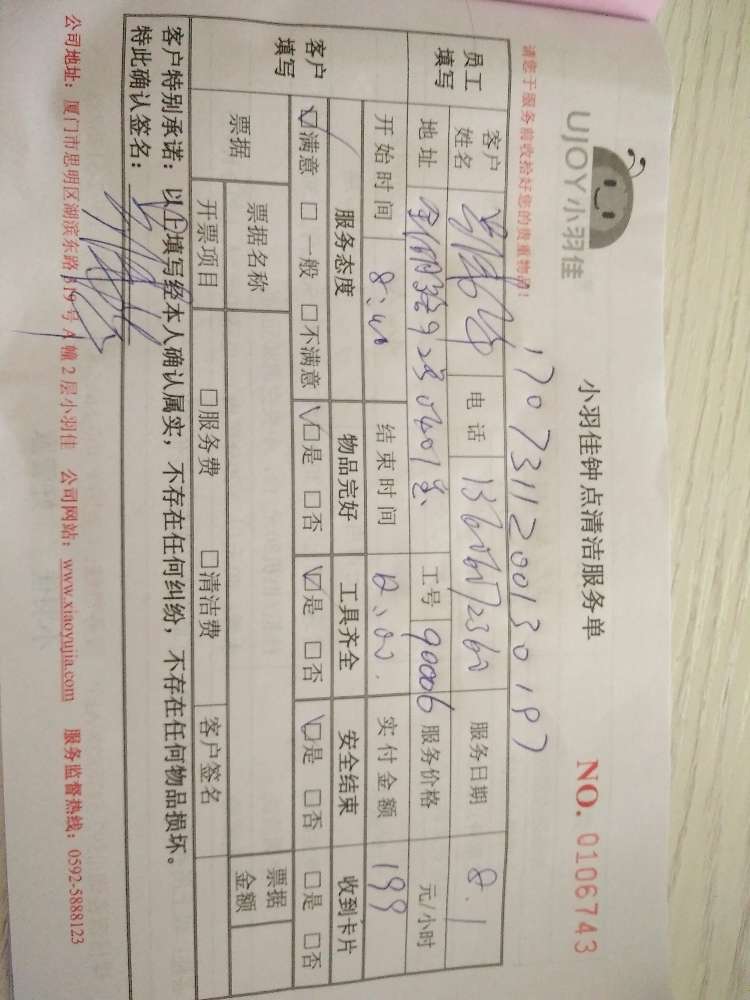 UJOY小羽佳
小羽佳钟点清洁服务单
NO. 0106743
请您于服务前收拾好您的贵重物品!
1707311200130197
员工填写 客户姓名 电话 服务日期 8.1
地址 923 0401室 工号 90006 服务价格 元/小时
开始时间 8:40 结束时间 12:00. 实付金额 199
客户填写 服务态度 物品完好 工具齐全 安全结束 收到卡片
☑满意 □一般 □不满意 ☑是 □否 ☑是 □否 ☑是 □否 □是 □否
票据 票据名称 票据金额
开票项目 □服务费 □清洁费 客户签名
客户特别承诺：以上填写经本人确认属实，不存在任何纠纷，不存在任何物品损坏。
特此确认签名：
公司地址：厦门市思明区湖滨东路319号A幢2层小羽佳 公司网站：www.xiaoyujia.com 服务监督热线：0592-5888123